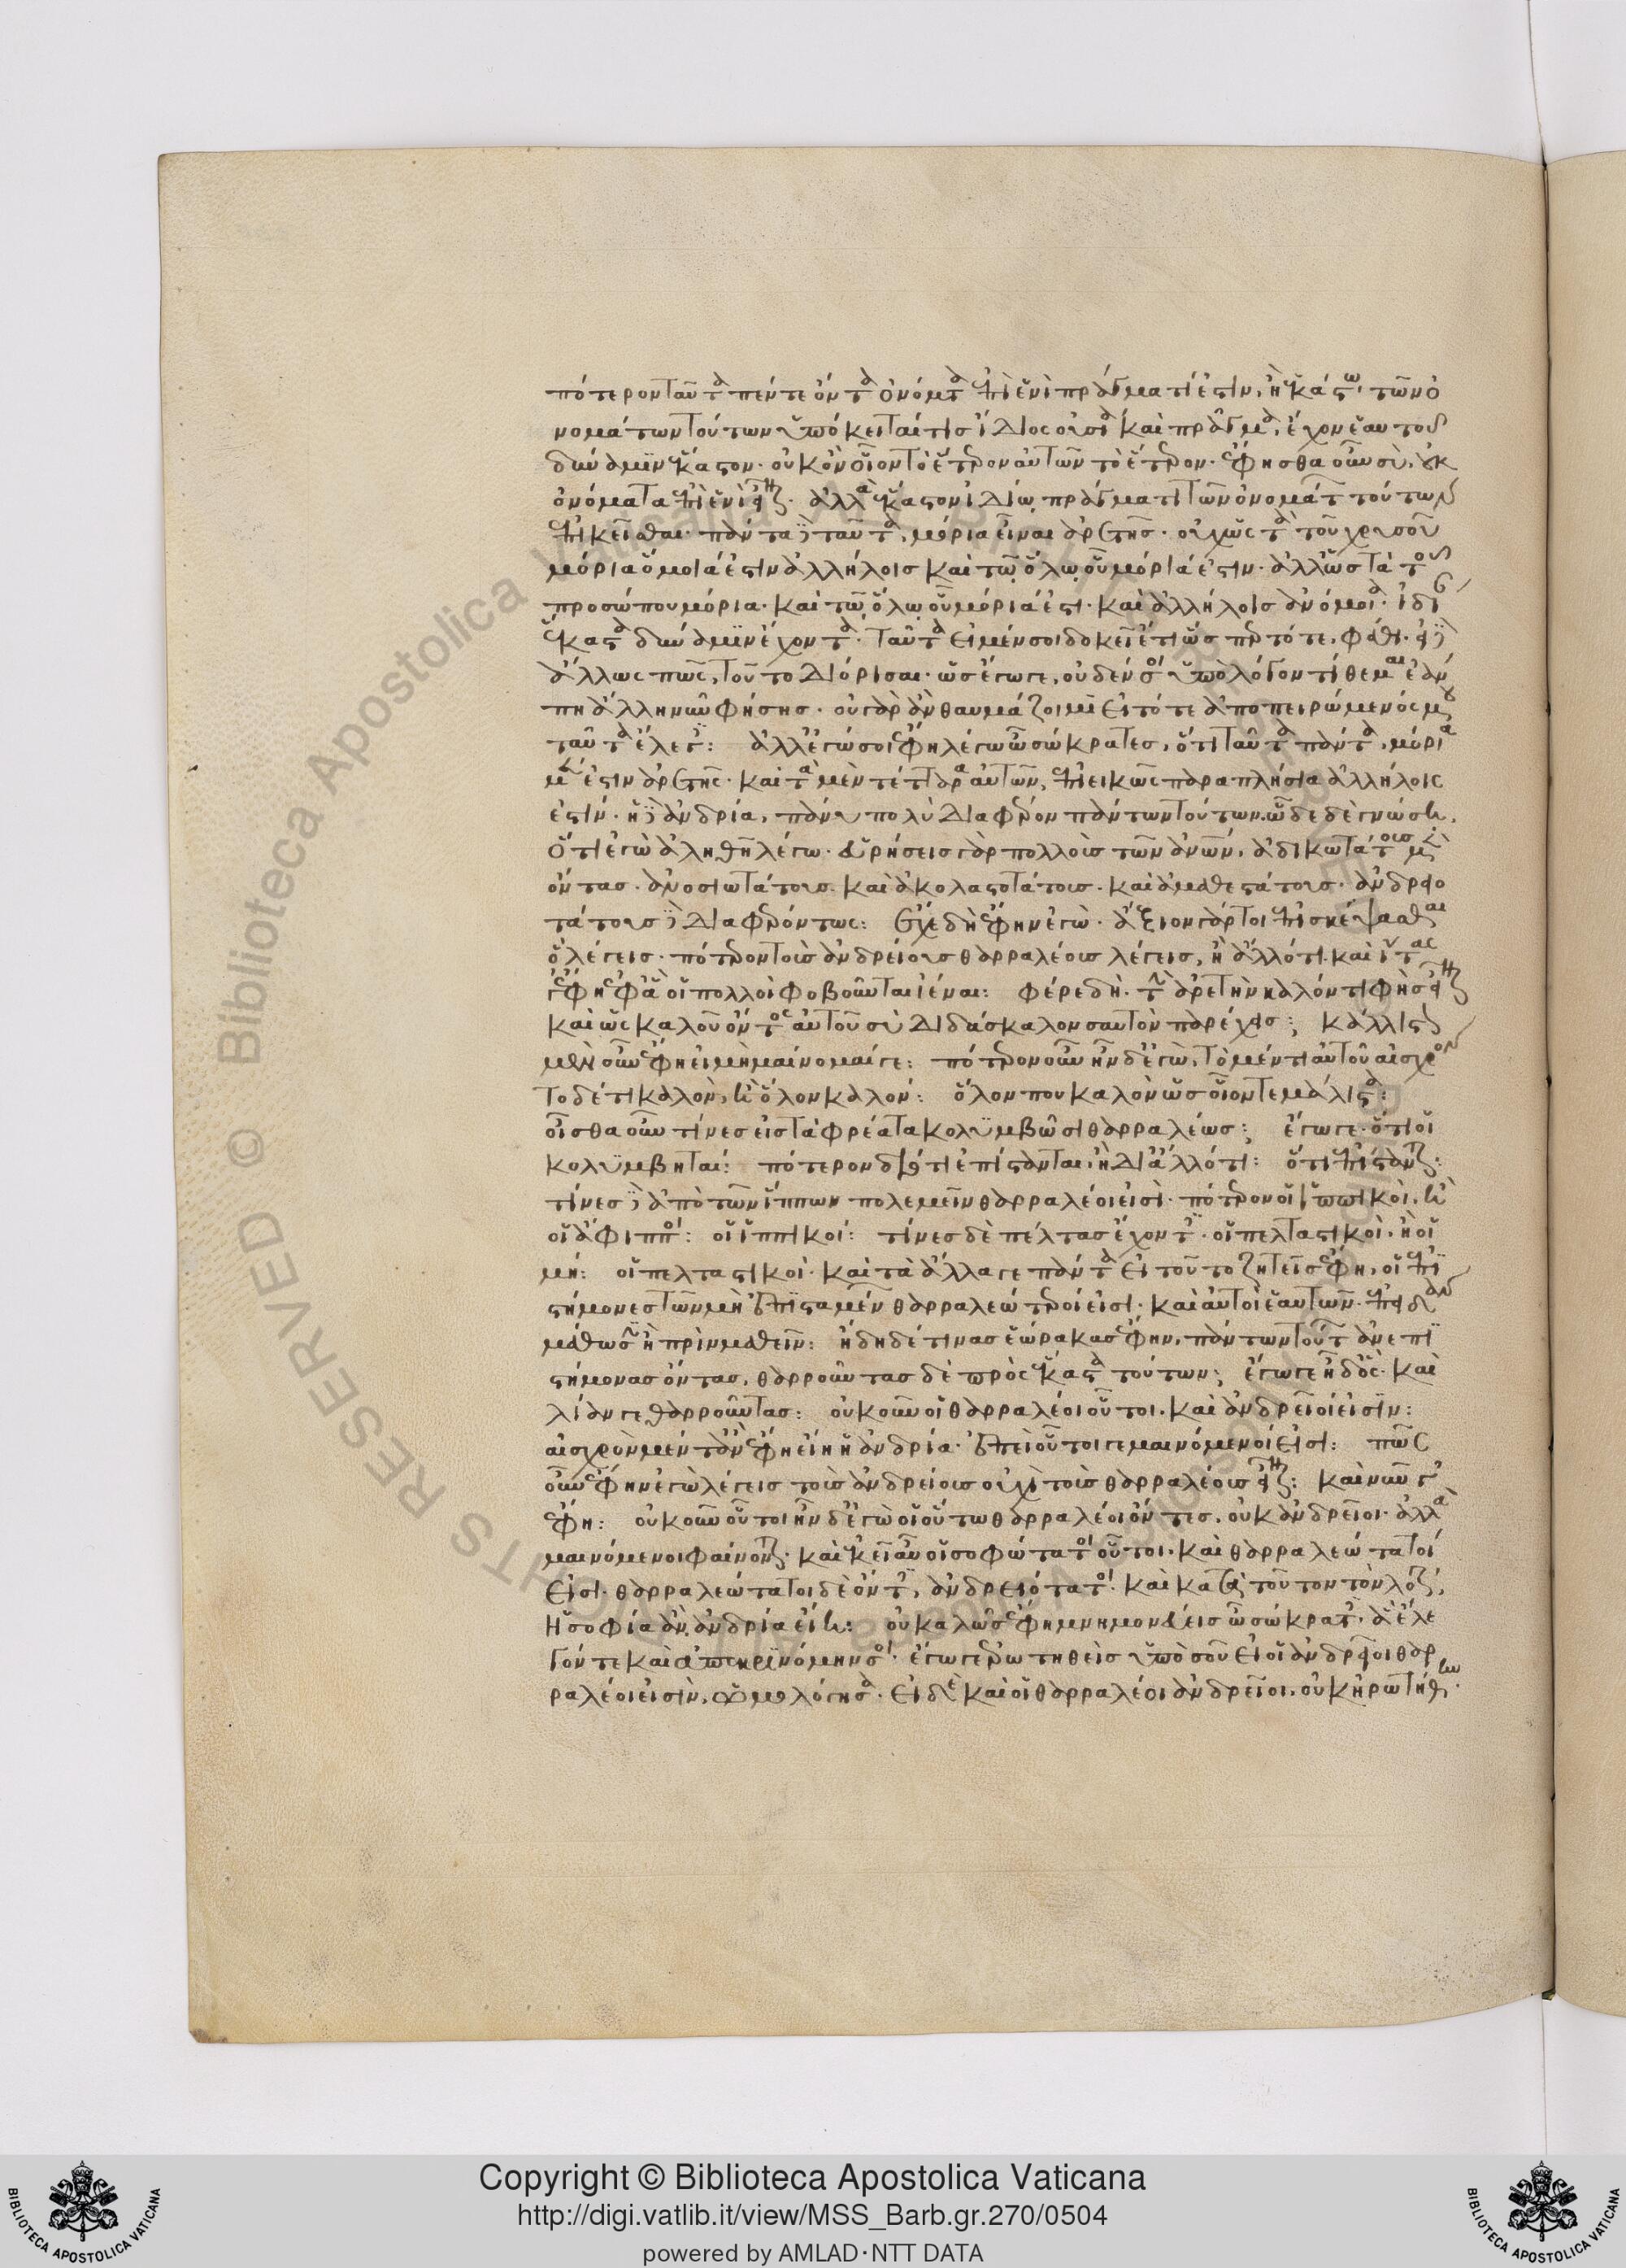 πότερον ταῦτα πέντε ὄντα ὀνόματα ἐπὶ ἑνὶ πράγματί ἐστιν, ἢ ἑκάστῳ τῶν ὀ
νομάτων τούτων ὑπόκειταί τις ἴδιος οὐσία καὶ πρᾶγμα, ἔχον ἑαυτοῦ
δύναμιν ἕκαστον· οὐκ ὂν οἷον τὸ ἕτερον αὐτῶν τὸ ἕτερον· ἔφησθα οὖν σὺ, οὐκ
ὀνόματα ἐπὶ ἑνὶ εἶναι· ἀλλὰ ἕκαστον ἰδίῳ πράγματι τῶν ὀνομάτων τούτων
ἐπικεῖσθαι· πάντα δὲ ταῦτα, μόρια εἶναι ἀρετῆς· οὐχ ὡς τὰ τοῦ χρυσοῦ
μόρια ὅμοιά ἐστιν ἀλλήλοις καὶ τῷ ὅλῳ οὗ μόριά ἐστιν· ἀλλ' ὡς τὰ τοῦ
προσώπου μόρια· καὶ τῷ ὅλῳ οὗ μόριά ἐστι· καὶ ἀλλήλοις ἀνόμοια· ἰδί
ἕκαστα δύναμιν ἔχοντα· ταῦτα εἰ μέν σοι δοκεῖ ἔτι ὡς περ τότε, φάθι· εἰ δὲ
ἄλλως πως, τοῦτο διόρισαι· ὡς ἔγωγε, οὐδέν σοι ὑπόλογον τίθεμαι ἐάν
πη ἄλλη νῦν φήσῃς· οὐ γὰρ ἂν θαυμάζοιμι εἰ τότε ἀποπειρώμενός μου
ταῦτα ἔλεγες: ἀλλ' ἐγώ σοι ἔφη λέγω ὦ σώκρατες, ὅτι ταῦτα πάντα, μόρια
μέν ἐστιν ἀρετῆς· καὶ τὰ μὲν τέτταρα αὐτῶν, ἐπιεικῶς παραπλήσια ἀλλήλοις
ἐστίν· ἡ δὲ ἀνδρία, πάνυ πολὺ διαφέρον πάντων τούτων. ὧδε δὲ γνώσει,
ὅτι ἐγὼ ἀληθῆ λέγω· εὑρήσεις γὰρ πολλοὺς τῶν ἀνων, ἀδικωτάτους μὲν
ὄντας· ἀνοσιωτάτους· καὶ ἀκολαστοτάτους· καὶ ἀμαθεστάτους· ἀνδρειο
τάτους δὲ διαφερόντως: ἔχε δὴ ἔφην ἐγὼ· ἄξιον γάρ τοι ἐπισκέψασθαι
ὃ λέγεις· πότερον τοὺς ἀνδρείους θαρραλέους λέγεις, ἢ ἄλλό τι· καὶ ἴτας
γ' ἔφη ἐφ' ἃ οἱ πολλοὶ φοβοῦνται ἰέναι: φέρε δὴ· τὴν ἀρετὴν καλόν τι φῂς εἶναι
καὶ ὡς καλοῦ ὄντος αὐτοῦ σὺ διδάσκαλον σαυτὸν παρέχεις; κάλλιστον
μὲν οὖν ἔφη εἰ μὴ μαίνομαί γε: πότερον οὖν ἦν δ' ἐγὼ, τὸ μέν τι αὐτοῦ αἰσχρὸν
τὸ δέ τι καλὸν, ἢ ὅλον καλόν: ὅλον που καλὸν ὡς οἷόν τε μάλιστα:
οἶσθα οὖν τίνες εἰς τὰ φρέατα κολυμβῶσι θαρραλέως; ἔγωγε· ὅτι οἱ
κολυμβηταί: πότερον διότι ἐπίστανται, ἢ δι' ἄλλό τι: ὅτι ἐπίστανται:
τίνες δὲ ἀπὸ τῶν ἵππων πολεμεῖν θαρραλέοι εἰσὶ· πότερον οἱ ἱππικοὶ, ἢ
οἱ ἄφιπποι: οἱ ἱππικοί: τίνες δὲ πέλτας ἔχοντες· οἱ πελταστικοὶ, ἢ οἱ
μή: οἱ πελταστικοί· καὶ τὰ ἄλλα γε πάντα εἰ τοῦτο ζητεῖς ἔφη, οἱ ἐπι
στήμονες τῶν μὴ ἐπισταμένων θαρραλεώτεροί εἰσι· καὶ αὐτοὶ ἑαυτῶν· ἐπειδὰν
μάθωσιν ἢ πρὶν μαθεῖν: ἤδη δέ τινας ἑώρακας ἔφην, πάντων τούτων ἀνεπι
στήμονας ὄντας, θαρροῦντας δὲ πρὸς ἕκαστα τούτων; ἔγωγε ἦ δ' ὃς· καὶ
λίαν γε θαρροῦντας: οὐκοῦν οἱ θαρραλέοι οὗτοι, καὶ ἀνδρεῖοί εἰσιν:
αἰσχρὸν μέντ' ἂν ἔφη εἴη ἡ ἀνδρία· ἐπεὶ οὗτοί γε μαινόμενοί εἰσι: πῶς
οὖν ἔφην ἐγὼ λέγεις τοὺς ἀνδρείους οὐχὶ τοὺς θαρραλέους εἶναι: καὶ νῦν γ'
ἔφη: οὐκοῦν οὗτοι ἦν δ' ἐγὼ οἱ οὕτω θαρραλέοι ὄντες, οὐκ ἀνδρεῖοι· ἀλλὰ
μαινόμενοι φαίνονται· καὶ ἐκεῖ αὖ οἱ σοφώτατοι οὗτοι, καὶ θαρραλεώτατοί
εἰσι· θαρραλεώτατοι δὲ ὄντες, ἀνδρειότατοι· καὶ κατὰ τοῦτον τὸν λόγον,
ἡ σοφία ἂν ἀνδρία εἴη: οὐ καλῶς ἔφη μνημονεύεις ὦ σώκρατες, ἃ ἔλε
γόν τε καὶ ἀπεκρινόμην σοι· ἔγωγε ἐρωτηθεὶς ὑπὸ σοῦ εἰ οἱ ἀνδρεῖοι θαρ
ραλέοι εἰσὶν, ὡμολόγησα· εἰ δὲ καὶ οἱ θαρραλέοι ἀνδρεῖοι, οὐκ ἠρωτήθην·
Copyright © Biblioteca Apostolica Vaticana
http://digi.vatlib.it/view/MSS_Barb.gr.270/0504
powered by AMLAD·NTT DATA